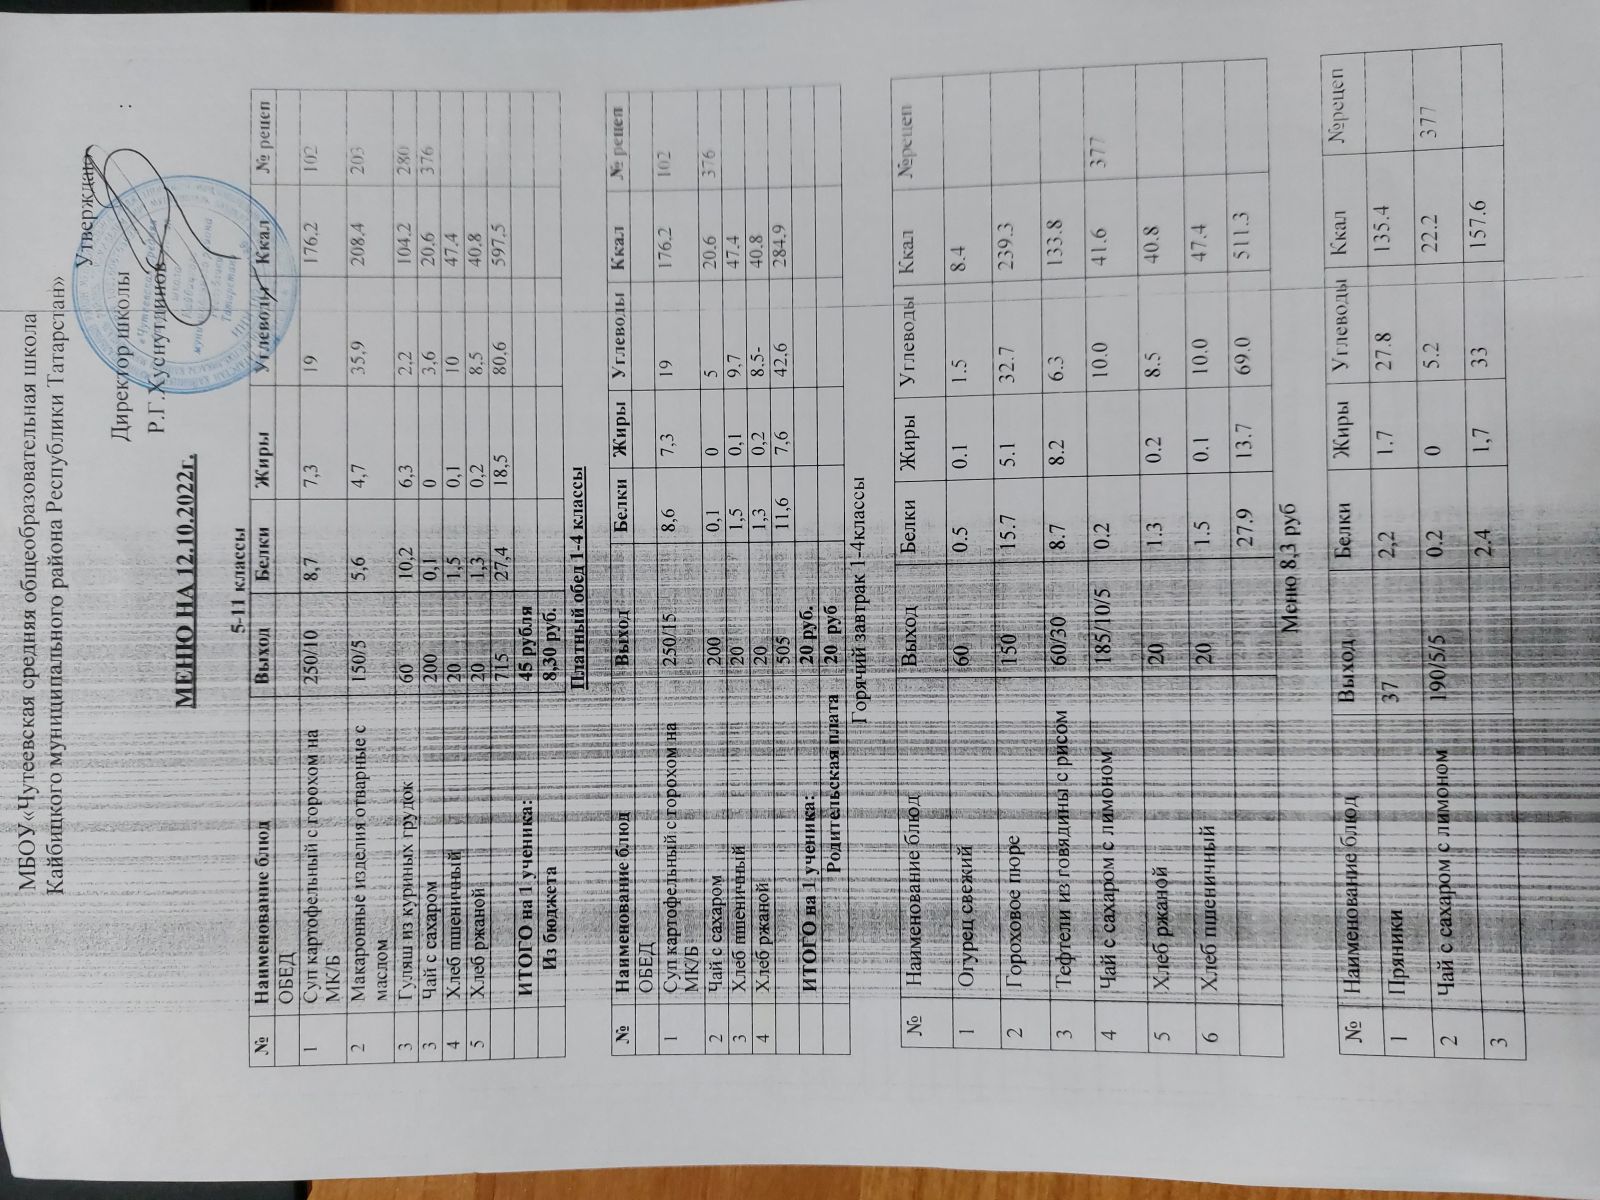 МБОУ «Чутеевская средняя общеобразовательная школа
Кайбицкого муниципального района Республики Татарстан»
Утверждаю :
Директор школы
Р.Г.Хуснутдинов
МЕНЮ НА 12.10.2022г.
5-11 классы
№ Наименование блюд Выход Белки Жиры Углеводы Ккал № рецеп
ОБЕД
1 Суп картофельный с горохом на 250/10 8,7 7,3 19 176,2 102
МК/Б
2 Макаронные изделия отварные с 150/5 5,6 4,7 35,9 208,4 203
маслом
3 Гуляш из куриных грудок 60 10,2 6,3 2,2 104,2 280
3 Чай с сахаром 200 0,1 0 3,6 20,6 376
4 Хлеб пшеничный 20 1,5 0,1 10 47,4
5 Хлеб ржаной 20 1,3 0,2 8,5 40,8
715 27,4 18,5 80,6 597,5
ИТОГО на 1 ученика: 45 рубля
Из бюджета 8,30 руб.
Платный обед 1-4 классы
№ Наименование блюд Выход Белки Жиры Углеводы Ккал № рецеп
ОБЕД
1 Суп картофельный с горохом на 250/15 8,6 7,3 19 176,2 102
МК/Б
2 Чай с сахаром 200 0,1 0 5 20.6 376
3 Хлеб пшеничный 20 1,5 0,1 9,7 47.4
4 Хлеб ржаной 20 1,3 0,2 8.5- 40.8
505 11,6 7,6 42.6 284,9
ИТОГО на 1 ученика: 20 руб.
Родительская плата 20 руб
Горячий завтрак 1-4классы
№ Наименование блюд Выход Белки Жиры Углеводы Ккал №рецеп
1 Огурец свежий 60 0.5 0.1 1.5 8.4
2 Гороховое пюре 150 15.7 5.1 32.7 239.3
3 Тефтели из говядины с рисом 60/30 8.7 8.2 6.3 133.8
4 Чай с сахаром с лимоном 185/10/5 0.2 10.0 41.6 377
5 Хлеб ржаной 20 1.3 0.2 8.5 40.8
6 Хлеб пшеничный 20 1.5 0.1 10.0 47.4
27.9 13.7 69.0 511.3
Меню 8,3 руб
№ Наименование блюд Выход Белки Жиры Углеводы Ккал №рецеп
1 Пряники 37 2,2 1.7 27.8 135.4
2 Чай с сахаром с лимоном 190/5/5 0.2 0 5.2 22.2 377
3 2.4 1,7 33 157.6